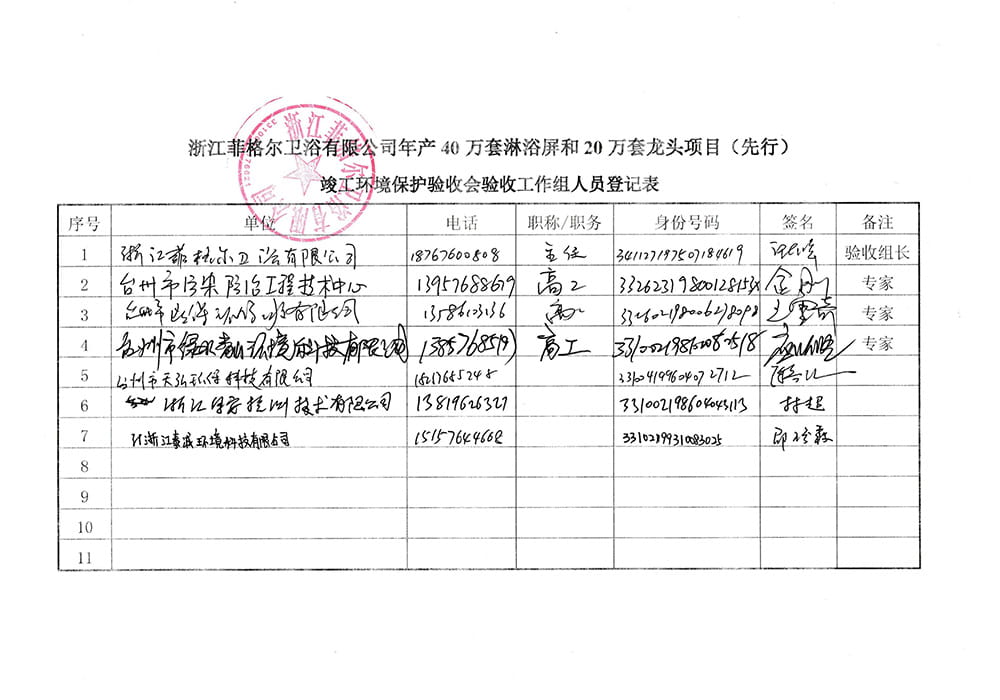 浙江菲格尔卫浴有限公司年产 40 万套淋浴屏和 20 万套龙头项目（先行）
竣工环境保护验收会验收工作组人员登记表
浙江菲格尔卫浴有限公司
序号 单位 电话 职称/职务 身份号码 签名 备注
1 浙江菲格尔卫浴有限公司 18767600808 主任 341127197507184619 验收组长
2 台州市污染防治工程技术中心 13957688679 高工 金 专家
3 有限公司 13586103136 专家
4 台州市绿水青山环境科技有限公司 高工 专家
5 台州市天弘环保科技有限公司
6 浙江 检测技术有限公司 13819626327 331002198604043113 林超
7 浙江 环境科技有限公司 15157644662 331021199310083025
8
9
10
11